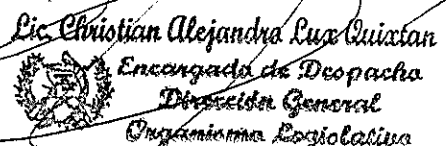 Lic. Christian Alejandro Lux Quixtan
Encargado de Despacho
Dirección General
Organismo Legislativo